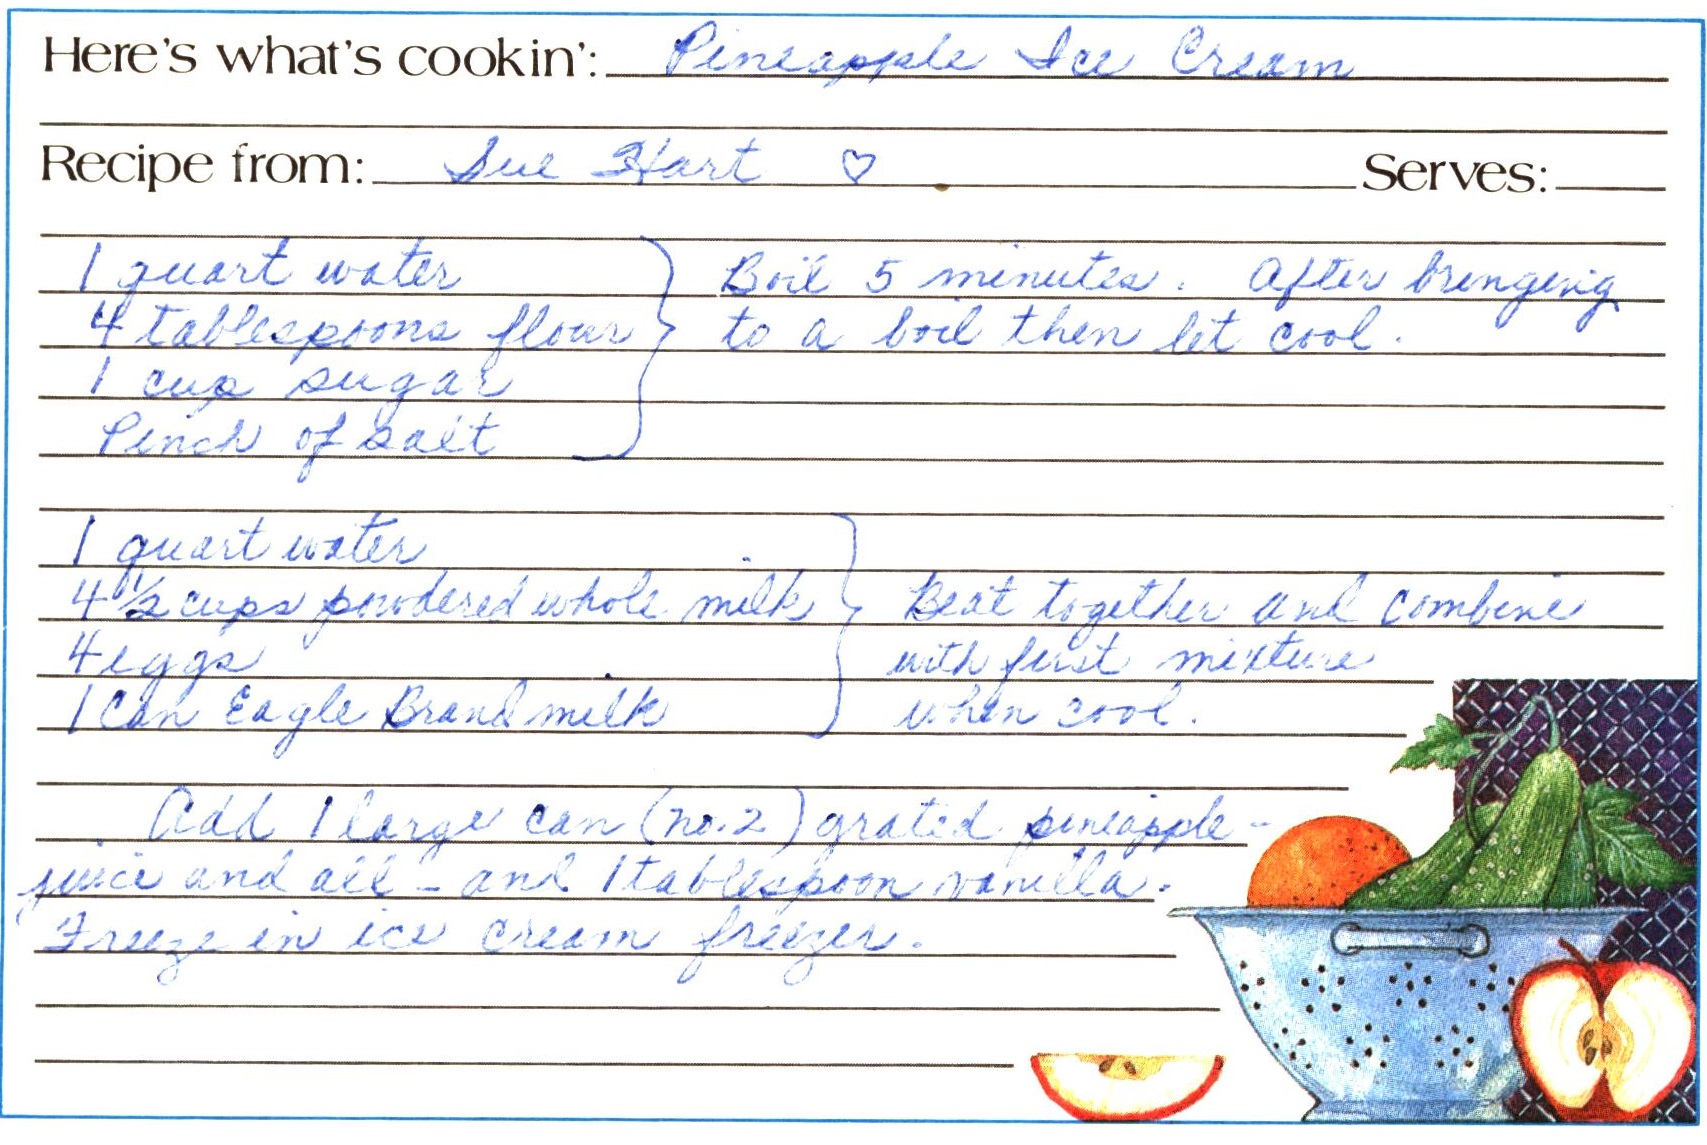 Here's what's cookin': Pineapple Ice Cream
Recipe from: Sue Hart ♡ Serves:
1 quart water
4 tablespoons flour
1 cup sugar
Pinch of salt
Boil 5 minutes. After bringing
to a boil then let cool.
1 quart water
4 1/2 cups powdered whole milk
4 eggs
1 Can Eagle Brand milk
Beat together and combine
with first mixture
when cool.
Add 1 large can (no. 2) grated pineapple -
juice and all - and 1 tablespoon vanilla.
Freeze in ice cream freezer.